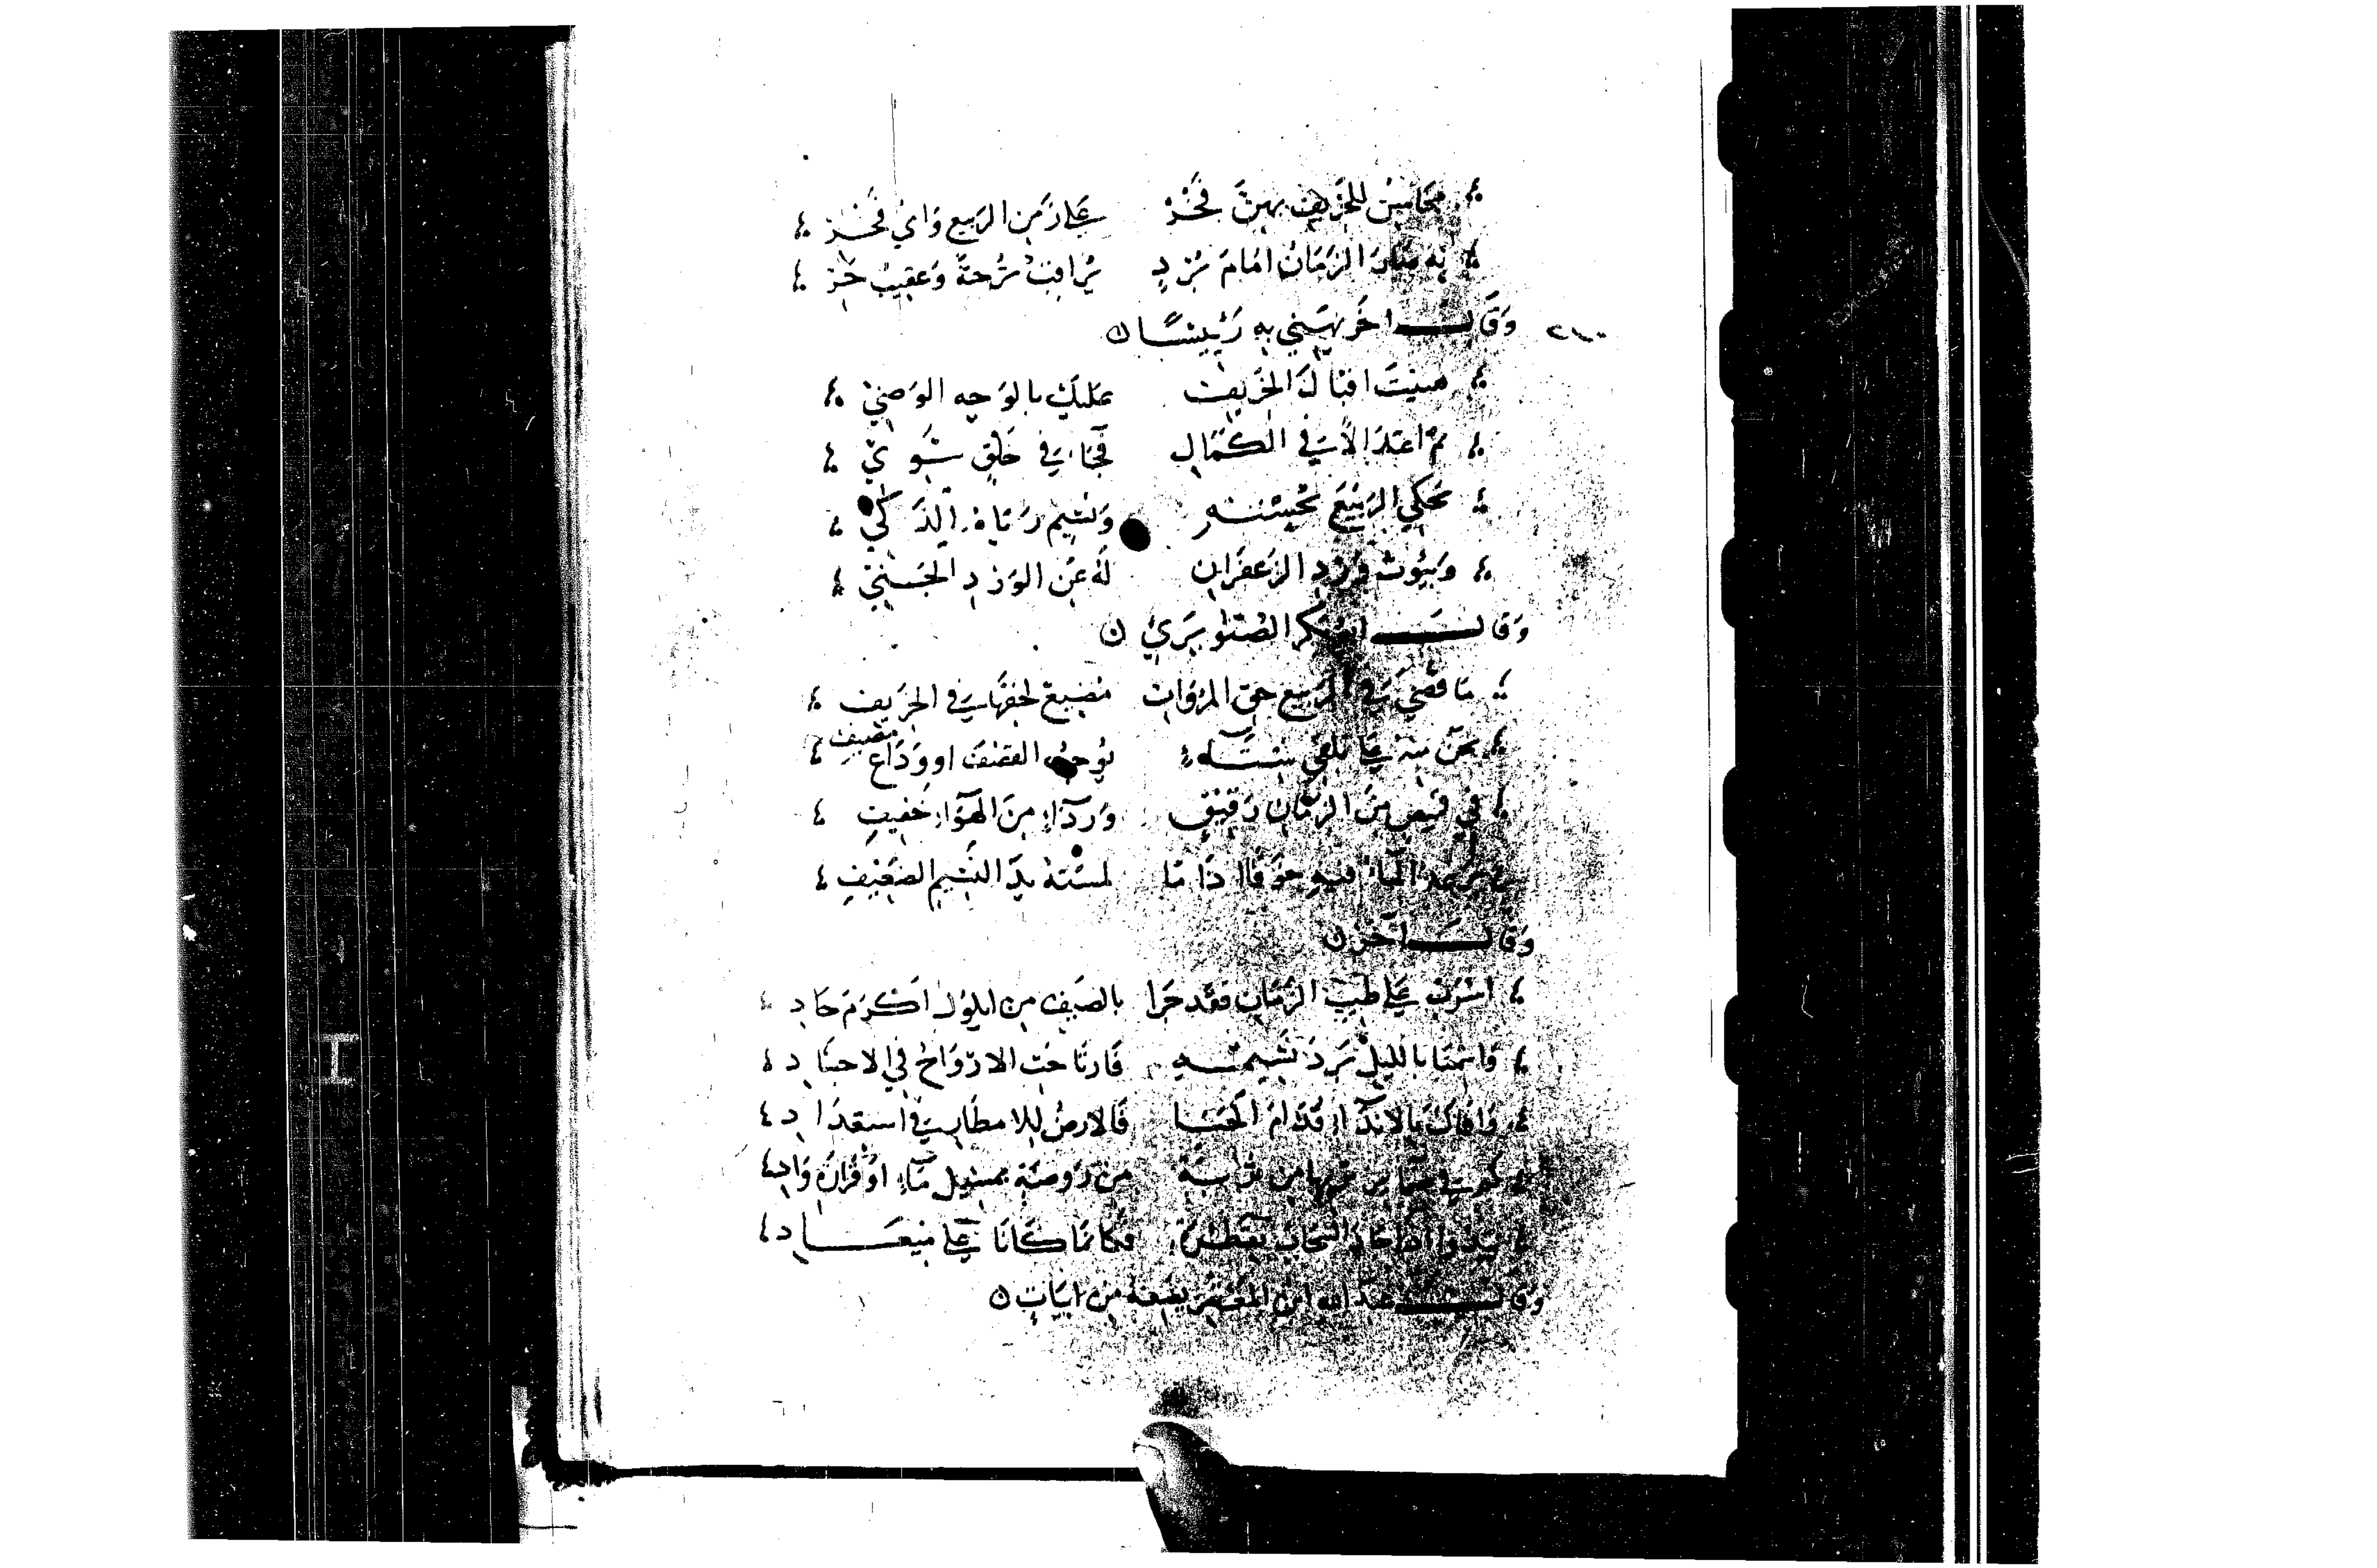 محَاسِنُ للخَريفِ بهِنَّ فَخْرُ عَلى زَمَنِ الرَبيعِ وَايُ فَخْرِ
بِهِ صَارَ الزمَانُ امَامَ بَرْدٍ يُرَاقِبُ نُزحَهُ وَعَقِيبَ حَرِ
وَقَالَ اخَر يُهَنِي بِهِ رَئِيسًا
هنيتَ اقبَالَ الخَرِيفِ عَلَيكَ بالوَجهِ الوَضِيْ
تمَّ اعتدَالاً في الكمَالِ فجَاءَ في خَلقٍ سَوِيْ
يَحكي الرَبيعَ بحُسْنه وَنسيم رَيّاهُ الذَكيْ
وَبيُوت وَرْدِ الزعفَرَانِ لَهُ عَن الوَرْدِ الجَنيْ
وَقالَ ابوبَكر الصُنَوبَرَيْ
مَا قضَي في الربيع حَق المرَوَاتِ مُضِيع لحَقهَا في الخَريفِ
نحن منهُ عَلى تلقي شتآء يُوجب القصْف او وَدَاع مَصيفِ
في قميصٍ منَ الزمَانِ رَقيقٍ وَرِدَآءٍ مِنَ الهَوَآءِ خَفيفِ
يُرعد المآءُ فيهِ خَوفًا اذَا مَا لمسَتهُ يدُ النسِيمِ الضَعِيفِ
وَقالَ آخرُ
اشرَب عَلى طيب الزمَانِ فقد حَدَا بالصَيفِ من ايلول اكرَم حَادِ
وَاشمنَا بالليل بَردَ نسيمهِ فَارتَاحَت الاروَاحُ في الاجسَادِ
وَافَاكَ بالاندَآءِ قدَامَ الحَيَا فَالارضُ للامطَارِ في استعدَادِ
كم في ضمَايِر تُربهَا مِن رَوضةٍ بمسيل مَاءٍ اوْ قَرَارَة وَادِ
تبدو اذا جَادَ السَحَابُ بقَطرهِ فَكانمَا كَانَا عَلى ميعَادِ
وَقالَ عبدالله ابن المعتز يصفهُ من ابيَاتٍ